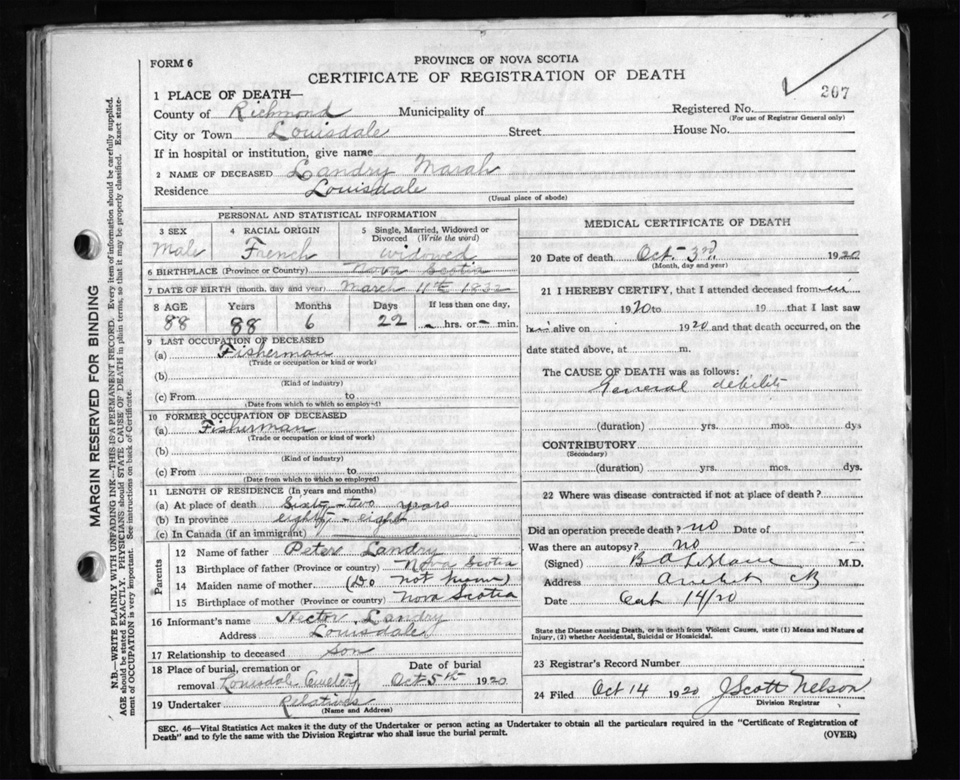 FORM 6
PROVINCE OF NOVA SCOTIA
CERTIFICATE OF REGISTRATION OF DEATH
207
1 PLACE OF DEATH—
County of Richmond Municipality of Registered No.
(For use of Registrar General only)
City or Town Louisdale Street House No.
If in hospital or institution, give name
2 NAME OF DECEASED Landry Marah
Residence Louisdale
(Usual place of abode)
PERSONAL AND STATISTICAL INFORMATION
3 SEX 4 RACIAL ORIGIN 5 Single, Married, Widowed or Divorced (Write the word)
Male French widowed
6 BIRTHPLACE (Province or Country) Nova Scotia
7 DATE OF BIRTH (month, day and year) March 11th 1832
8 AGE Years Months Days If less than one day,
88 88 6 22 — hrs. or — min.
9 LAST OCCUPATION OF DECEASED
(a) Fisherman
(Trade or occupation or kind of work)
(b)
(Kind of industry)
(c) From to
(Date from which to which so employed)
10 FORMER OCCUPATION OF DECEASED
(a) Fisherman
(Trade or occupation or kind of work)
(b)
(Kind of industry)
(c) From to
(Date from which to which so employed)
11 LENGTH OF RESIDENCE (In years and months)
(a) At place of death Sixty-two years
(b) In province eighty-eight
(c) In Canada (if an immigrant)
Parents
12 Name of father Peter Landry
13 Birthplace of father (Province or country) Nova Scotia
14 Maiden name of mother (Do not know)
15 Birthplace of mother (Province or country) Nova Scotia
16 Informant's name Hector Landry
Address Louisdale
17 Relationship to deceased son
18 Place of burial, cremation or Date of burial
removal Louisdale Cemetery Oct 5th 1920
19 Undertaker Relatives
(Name and Address)
MEDICAL CERTIFICATE OF DEATH
20 Date of death Oct 3rd 1920
(Month, day and year)
21 I HEREBY CERTIFY, that I attended deceased from
1920 to 19 that I last saw
him alive on 1920 and that death occurred, on the
date stated above, at m.
The CAUSE OF DEATH was as follows:
General debility
(duration) yrs. mos. dys
CONTRIBUTORY
(Secondary)
(duration) yrs. mos. dys.
22 Where was disease contracted if not at place of death?
Did an operation precede death? no Date of
Was there an autopsy? no
(Signed) M.D.
Address Arichat CB
Date Oct 14/20
State the Disease causing Death, or in death from Violent Causes, state (1) Means and Nature of
Injury, (2) whether Accidental, Suicidal or Homicidal.
23 Registrar's Record Number
24 Filed Oct 14 1920 J Scott Nelson
Division Registrar
SEC. 46—Vital Statistics Act makes it the duty of the Undertaker or person acting as Undertaker to obtain all the particulars required in the "Certificate of Registration of
Death" and to fyle the same with the Division Registrar who shall issue the burial permit. (OVER)
MARGIN RESERVED FOR BINDING
N.B.—WRITE PLAINLY WITH UNFADING INK—THIS IS A PERMANENT RECORD. Every item of information should be carefully supplied.
AGE should be stated EXACTLY. PHYSICIANS should STATE CAUSE OF DEATH in plain terms, so that it may be properly classified. Exact state-
ment of OCCUPATION is very important. See instructions on back of Certificate.